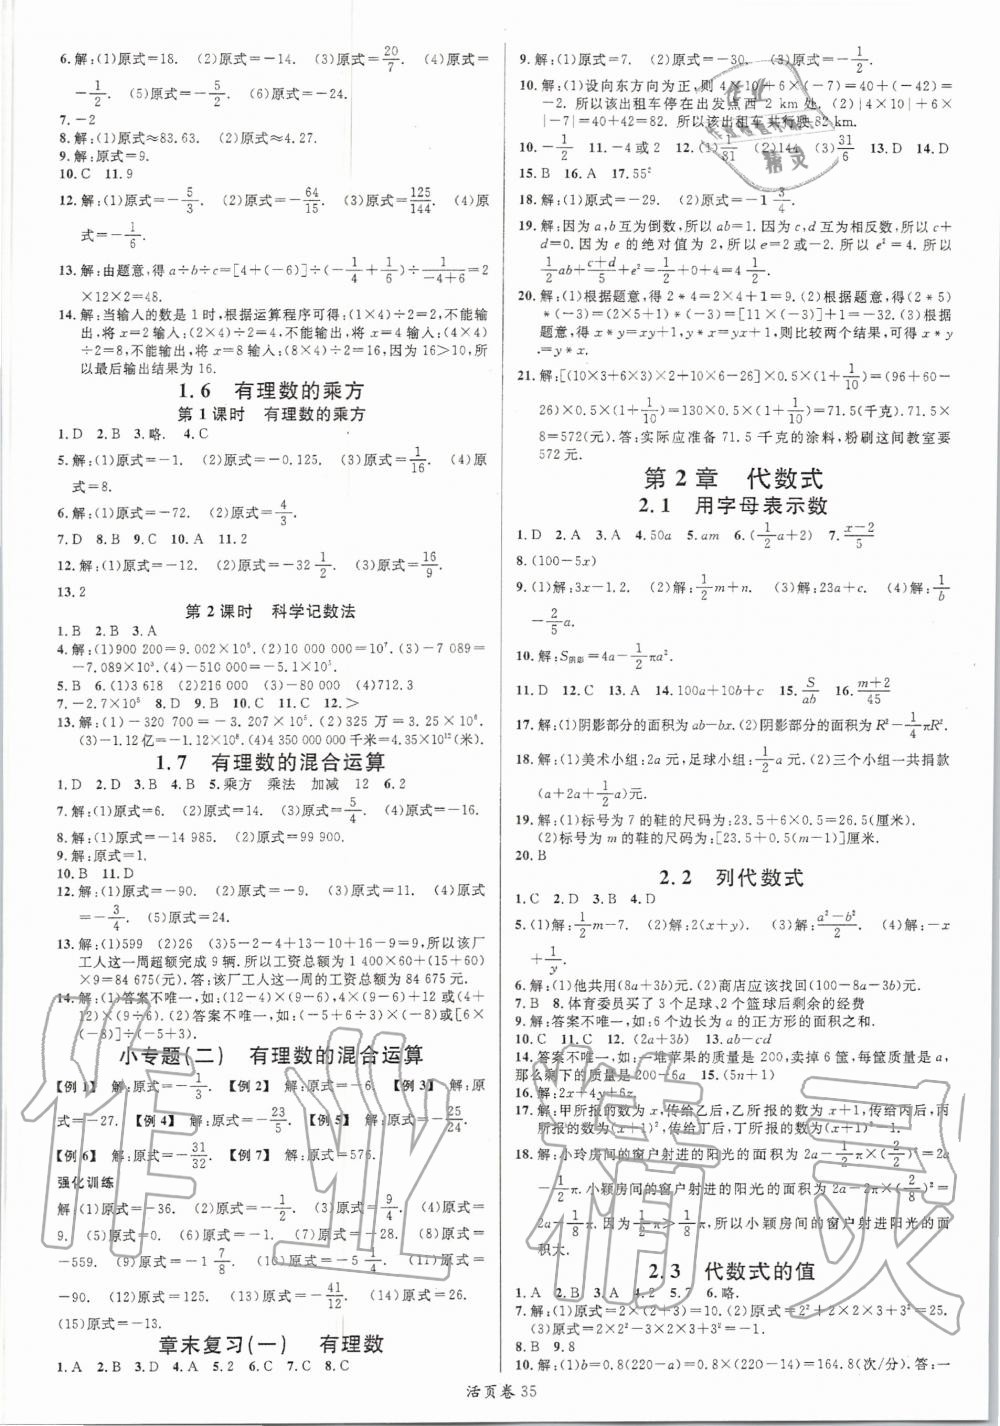 6.解:(1)原式=18. (2)原式=-14. (3)原式=20/7. (4)原式=
-1/2. (5)原式=-5/2. (6)原式=-24.
7.-2
8.解:(1)原式≈83.63. (2)原式≈4.27.
9.解:原式=9.
10.C 11.9
12.解:(1)原式=-5/3. (2)原式=-64/15. (3)原式=125/144. (4)原
式=-1/6.
13.解:由题意,得a÷b÷c=[4+(-6)]÷(-1/4+1/6)÷1/(-4+6)=2
×12×2=48.
14.解:当输入的数是1时,根据运算程序可得:(1×4)÷2=2,不能输
出,将x=2输入;(2×4)÷2=4,不能输出,将x=4输入;(4×4)
÷2=8,不能输出,将x=8输入;(8×4)÷2=16,因为16>10,所
以最后输出结果为16.
1.6 有理数的乘方
第1课时 有理数的乘方
1.D 2.B 3.略. 4.C
5.解:(1)原式=-1. (2)原式=-0.125. (3)原式=1/16. (4)原
式=8.
6.解:(1)原式=-72. (2)原式=-4/3.
7.D 8.B 9.C 10.A 11.2
12.解:(1)原式=-12. (2)原式=-32 1/2. (3)原式=16/9.
13.2
第2课时 科学记数法
1.B 2.B 3.A
4.解:(1)900 200=9.002×10⁵.(2)10 000 000=10⁷.(3)-7 089=
-7.089×10³.(4)-510 000=-5.1×10⁵.
5.B 6.(1)3 618 (2)216 000 (3)-51 000 000 (4)712.3
7.-2.7×10⁵ 8.D 9.B 10.C 11.C 12.>
13.解:(1)-320 700=-3.207×10⁵. (2)325万=3.25×10⁶.
(3)-1.12亿=-1.12×10⁸.(4)4 350 000 000千米=4.35×10¹²(米).
1.7 有理数的混合运算
1.D 2.D 3.B 4.B 5.乘方 乘法 加减 12 6.2
7.解:(1)原式=6. (2)原式=14. (3)原式=5/4. (4)原式=-16.
8.解:(1)原式=-14 985. (2)原式=99 900.
9.解:原式=1.
10.B 11.D
12.解:(1)原式=-90. (2)原式=-24. (3)原式=9. (4)原式=
-3/4. (5)原式=24.
13.解:(1)599 (2)26 (3)5-2-4+13-10+16-9=9,所以该厂
工人这一周超额完成9辆.所以工资总额为1 400×60+(15+60)
×9=84 675(元).答:该厂工人这一周的工资总额为84 675元.
14.解:(1)答案不唯一,如:(-5-9+2)×(-6)+12或(4+
12)×(9÷6). (2)答案不唯一,如:(-5+6÷3)×(-8)或[6
×(-8)]÷(-5+3).
小专题(二) 有理数的混合运算
【例1】 解:原式=-1/3. 【例2】 解:原式=-6. 【例3】 解:原
式=-27. 【例4】 解:原式=-23/5. 【例5】 解:原式=-25/24.
【例6】 解:原式=-31/32. 【例7】 解:原式=576.
强化训练
解:(1)原式=-36. (2)原式=-1/2. (3)原式=9/4. (4)原式=
9. (5)原式=0. (6)原式=0. (7)原式=-5 1/4. (8)原式=
-559. (9)原式=-1 7/8. (10)原式=-5 1/4. (11)原式=
-90. (12)原式=2. (13)原式=-41/12. (14)原式=26.
(15)原式=-13.
章末复习(一) 有理数
1.A 2.B 3.D 4.D 5.D 6.C 7.C 8.C
9.解:(1)原式=7. (2)原式=-30. (3)原式=-1/2.
10.解:(1)设向东方向为正,则4×10+6×(-7)=40+(-42)=
-2. 所以该出租车停在出发点西2 km处. (2)|4×10|+|6×
(-7)|=40+42=82. 所以该出租车共行驶82 km.
10.-1/2 11.-4或2 12.(1)1/81 (2)144 (3)31/6 13.D 14.D
15.B 16.A 17.55²
18.解:(1)原式=-29. (2)原式=-1 3/4.
19.解:因为a,b互为倒数,所以ab=1.因为c,d互为相反数,所以c+
d=0.因为e的绝对值为2,所以e=±2.所以e²=(±2)²=4. 所以
1/2ab+(c+d)/5+e²=1/2+0+4=4 1/2.
20.解:(1)根据题意,得2*4=2×4+1=9. (2)根据题意,得(2*5)
*(-3)=(2×5+1)*(-3)=[11×(-3)]+1=-32. (3)根据
题意,得x*y=xy+1,y*x=yx+1,则比较两个结果,可得x*y
=y*x.
21.解:[(10×3+6×3)×2+10×6-26]×0.5×(1+1/10)=(96+60-
26)×0.5×(1+1/10)=130×0.5×(1+1/10)=71.5(千克).71.5×
8=572(元).答:实际应准备71.5千克的涂料,粉刷这间教室要
572元.
第2章 代数式
2.1 用字母表示数
1.D 2.A 3.A 4.50a 5.am 6.(1/2a+2) 7.(x-2)/5
8.(100-5x)
9.(1)解:3x-1.2. (2)解:1/2m+n. (3)解:23a+b. (4)解:1/b
-2/5a.
10.解:S阴影=4a-1/2πa².
11.D 12.C 13.A 14.100a+10b+c 15.S/ab 16.(m+2)/45
17.解:(1)阴影部分的面积为ab-bx.(2)阴影部分的面积为R²-1/4πR².
18.解:(1)美术小组:2a元,足球小组:1/2a元. (2)三个小组一共捐款
(a+2a+1/2a)元.
19.解:(1)标号为7的鞋的尺码为:23.5+0.5×6=26.5(厘米).
(2)标号为m的鞋的尺码为:[23.5+0.5(m-1)]厘米.
20.B
2.2 列代数式
1.C 2.D 3.B 4.D
5.(1)解:1/2m-7. (2)解:2(x+y). (3)解:(a²-b²)/2. (4)解:-x
+1/y.
6.解:(1)他共用(8a+3b)元.(2)商店应该找回(100-8a-3b)元.
7.B 8.体育委员买了3个足球、2个篮球后剩余的经费
9.解:答案不唯一,如:6个边长为a的正方形的面积之和.
10.C 11.C 12.(2a+3b) 13.ab-cd
14.答案不唯一,如:一堆苹果的质量是200,卖掉6筐,每筐质量是a,
那么剩下的质量是200-6a 15.(5n+1)
16.解:2x+4y+6z.
17.解:甲所报的数为x,传给乙后,乙所报的数为x+1,传给丙后,丙
所报的数为(x+1)²,传给丁后,丁所报的数为(x+1)²-1.
18.解:小玲房间的窗户射进的阳光的面积为2a-1/2×π×(2/2)²=2a
-1/2π.小颖房间的窗户射进的阳光的面积为2a-4×π×(2/8)²=
2a-1/4π. 因为1/2π>1/4π,所以小颖房间的窗户射进阳光的面
积大.
2.3 代数式的值
1.A 2.A 3.A 4.2 5.7 6.略.
7.解:(1)原式=2×(2+3)=10. (2)原式=2²+2×2×3+3²=25.
(3)原式=2²+3²=13. (4)原式=2²-2×2×3+3²=1.
8.B 9.8
10.解:(1)b=0.8(220-a)=0.8×(220-14)=164.8(次/分).答:一
活页卷 35
作业精灵